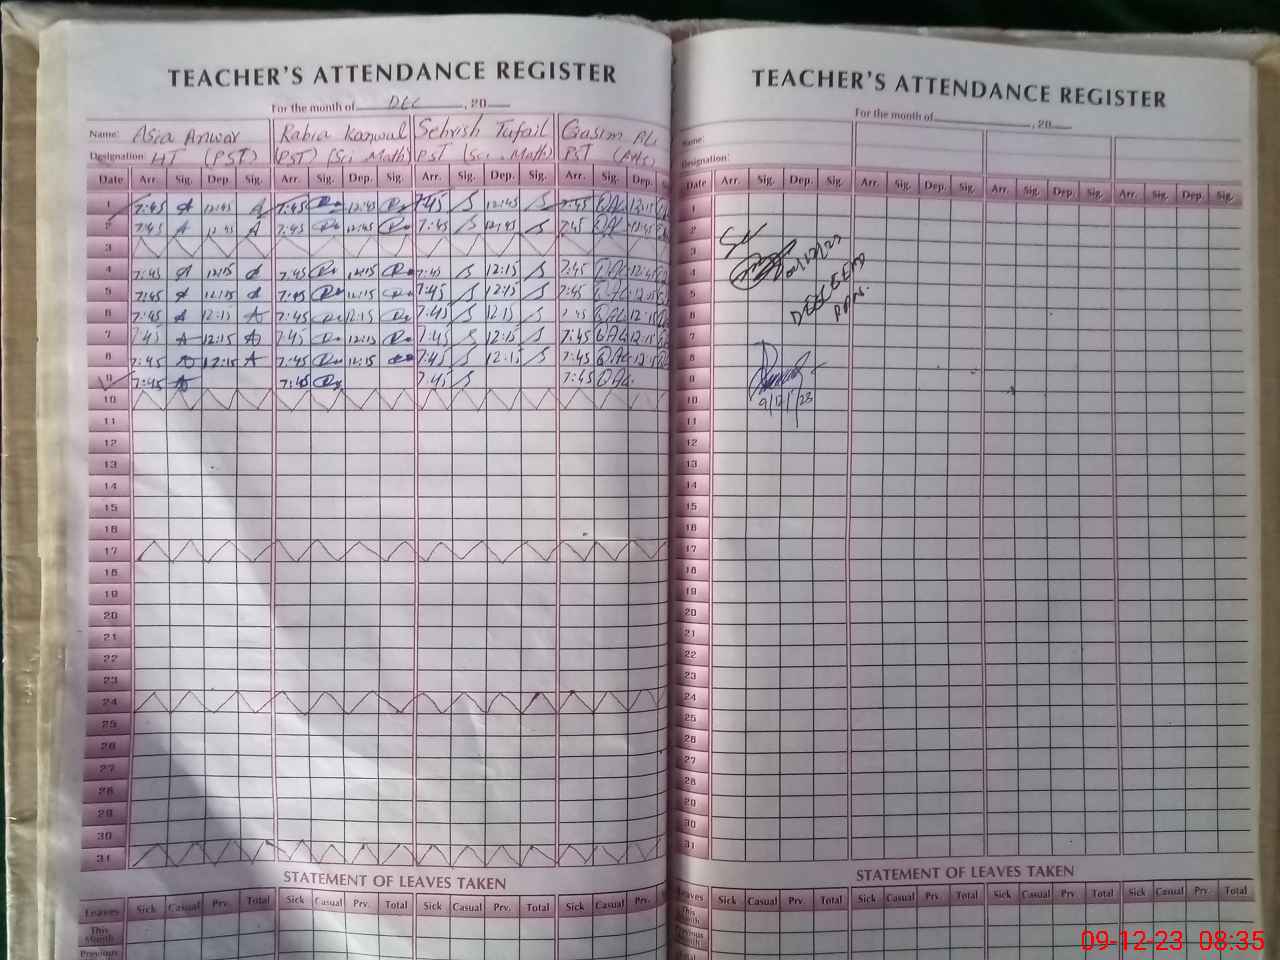 TEACHER'S ATTENDANCE REGISTER
For the month of DEC, 20
Name: Asia Anwar Rabia Kanwal Sehrish Tufail Qasim Ali
Designation HT (PST) (PST) (Sci Math) PST (Sci. Math) PST (Arts)
Date Arr. Sig. Dep. Sig. Arr. Sig. Dep. Sig. Arr. Sig. Dep. Sig. Arr. Sig. Dep.
1 7:45 12:45 7:45 12:45 7:45 12:45 7:45 12:15
2 7:45 12:45 7:45 12:45 7:45 12:45 7:45 12:45
3
4 7:45 12:15 7:45 12:15 7:45 12:15 7:45 12:45
5 7:45 12:15 7:45 12:15 7:45 12:15 7:45 12:15
6 7:45 12:15 7:45 12:15 7:45 12:15 7:45 12:15
7 7:45 12:15 7:45 12:15 7:45 12:15 7:45 12:15
8 7:45 12:15 7:45 12:15 7:45 12:15 7:45 12:15
9 7:45 7:45 7:45 7:45
10
11
12
13
14
15
16
17
18
19
20
21
22
23
24
25
26
27
28
29
30
31
STATEMENT OF LEAVES TAKEN
Leaves Sick Casual Prv. Total Sick Casual Prv. Total Sick Casual Prv. Total Sick Casual Prv.
This Month
Previous
TEACHER'S ATTENDANCE REGISTER
For the month of , 20
Name:
Designation:
Date Arr. Sig. Dep. Sig. Arr. Sig. Dep. Sig. Arr. Sig. Dep. Sig. Arr. Sig. Dep. Sig.
1
2
3
4
5
6
7
8
9
10
9/12/23
11
12
13
14
15
16
17
18
19
20
21
22
23
24
25
26
27
28
29
30
31
STATEMENT OF LEAVES TAKEN
Leaves Sick Casual Prv. Total Sick Casual Prv. Total Sick Casual Prv. Total Sick Casual Prv. Total
This Month
Previous
09-12-23 08:35